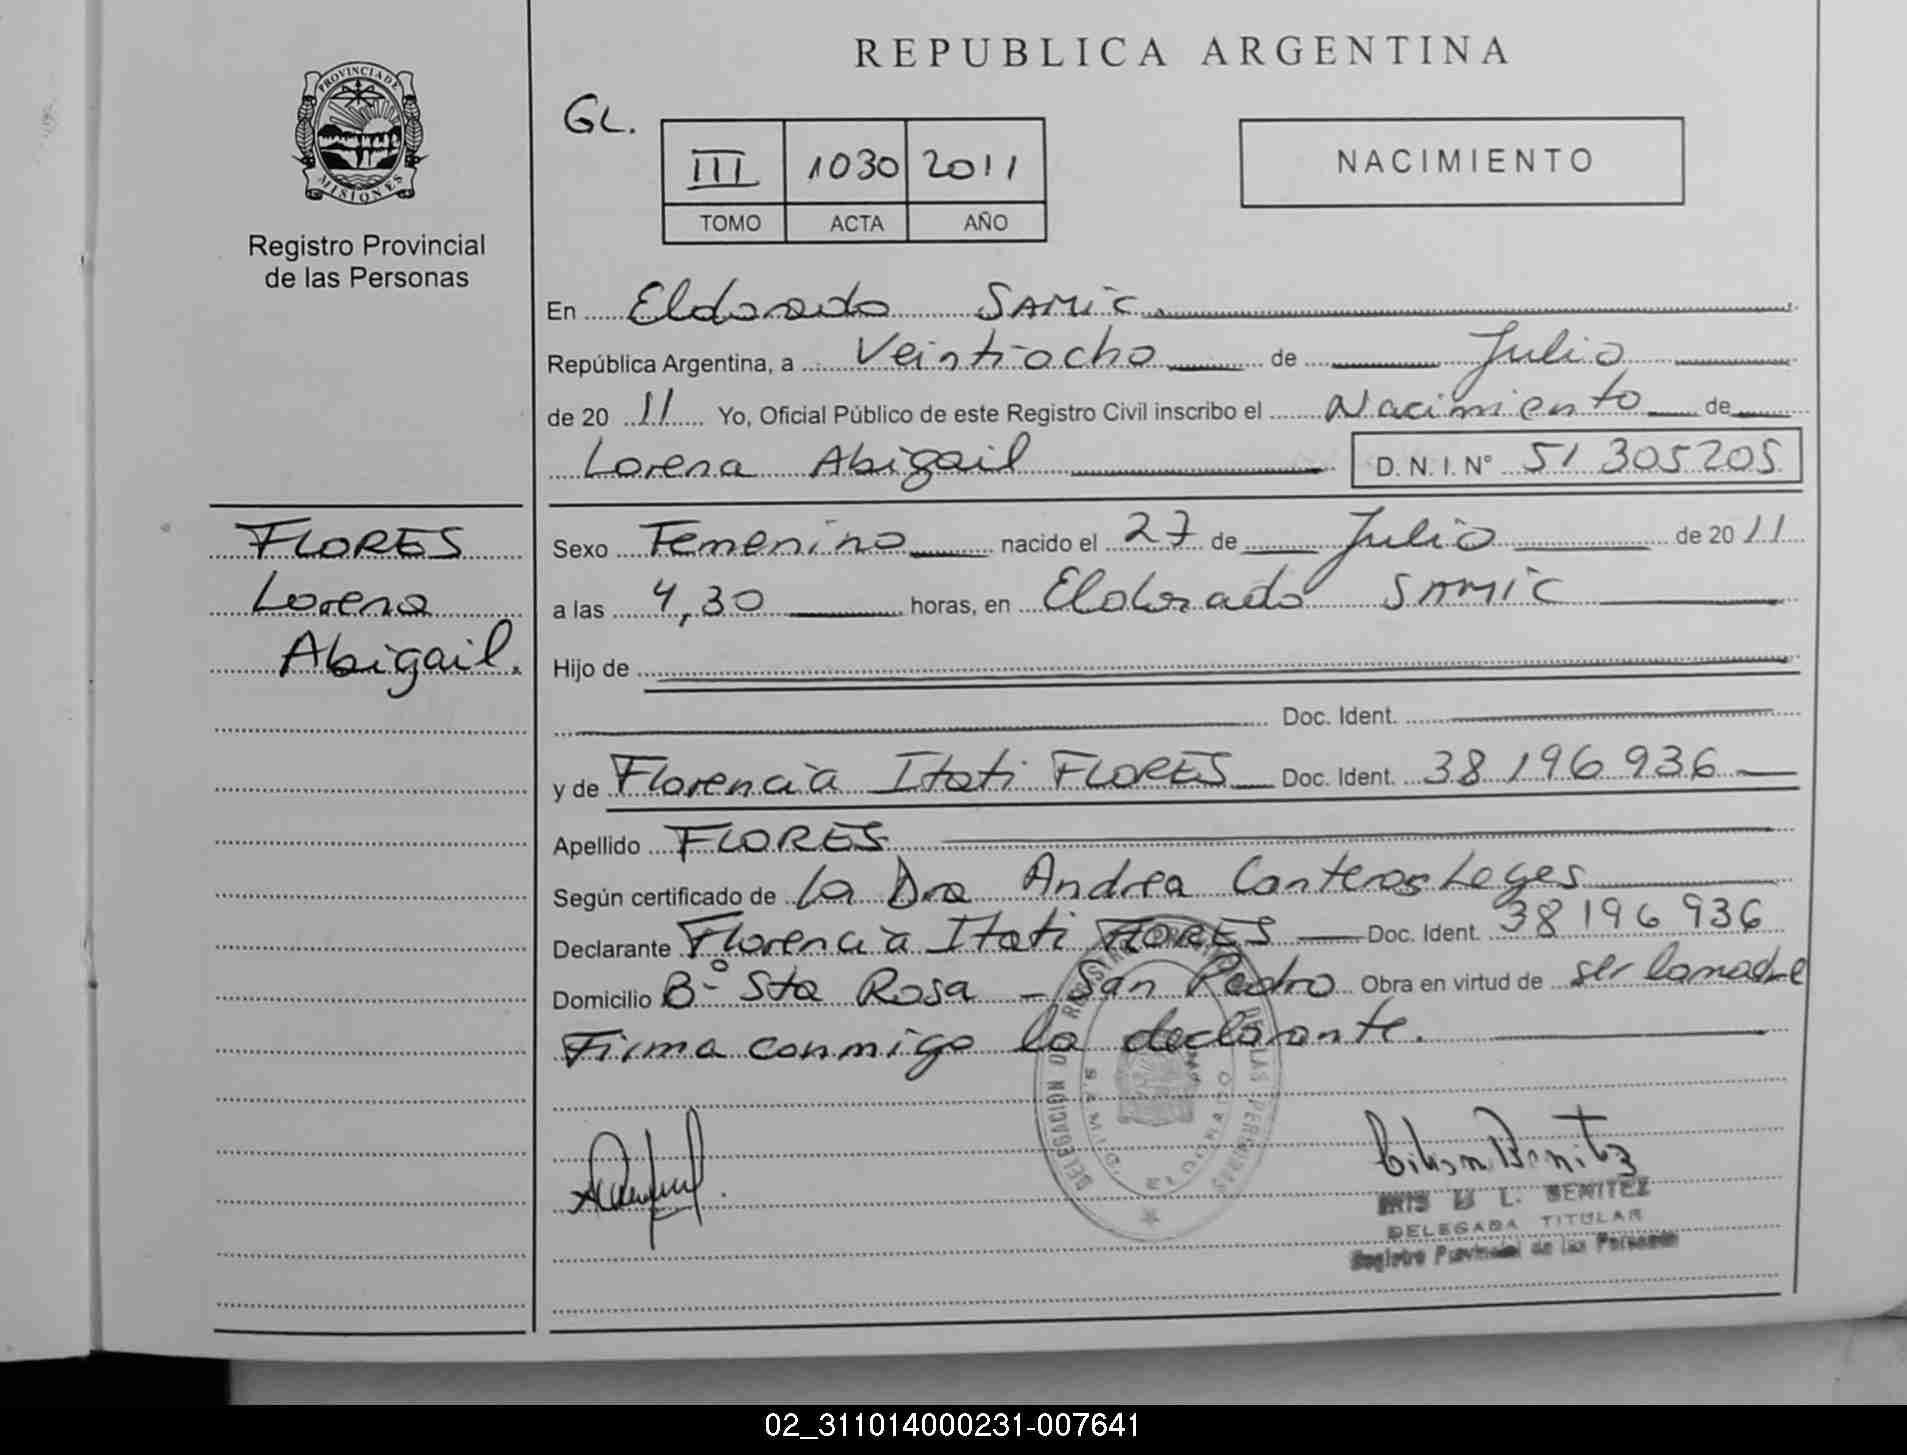 REPUBLICA ARGENTINA
PROVINCIA DE
MISIONES
Registro Provincial
de las Personas
GL.
III 1030 2011
TOMO ACTA AÑO
NACIMIENTO
En Eldorado SAMIC
República Argentina, a Veintiocho de Julio
de 20 11 Yo, Oficial Público de este Registro Civil inscribo el Nacimiento de
Lorena Abigail D. N. I. N° 51 305205
FLORES
Lorena
Abigail.
Sexo Femenino nacido el 27 de Julio de 20 11
a las 4,30 horas, en Eldorado SAMIC
Hijo de
Doc. Ident.
y de Florencia Itati FLORES Doc. Ident. 38 196 936
Apellido FLORES
Según certificado de La Dra Andrea Canteros Leges
Declarante Florencia Itati FLORES Doc. Ident. 38 196 936
Domicilio B° Sta Rosa - San Pedro Obra en virtud de ser la madre
Firma conmigo la declarante.
DELEGACION DE REGISTRO DE LAS PERSONAS
S.A.M.I.C. ELDORADO
L. BENITEZ
DELEGADA TITULAR
Registro Provincial de las Personas
02_311014000231-007641